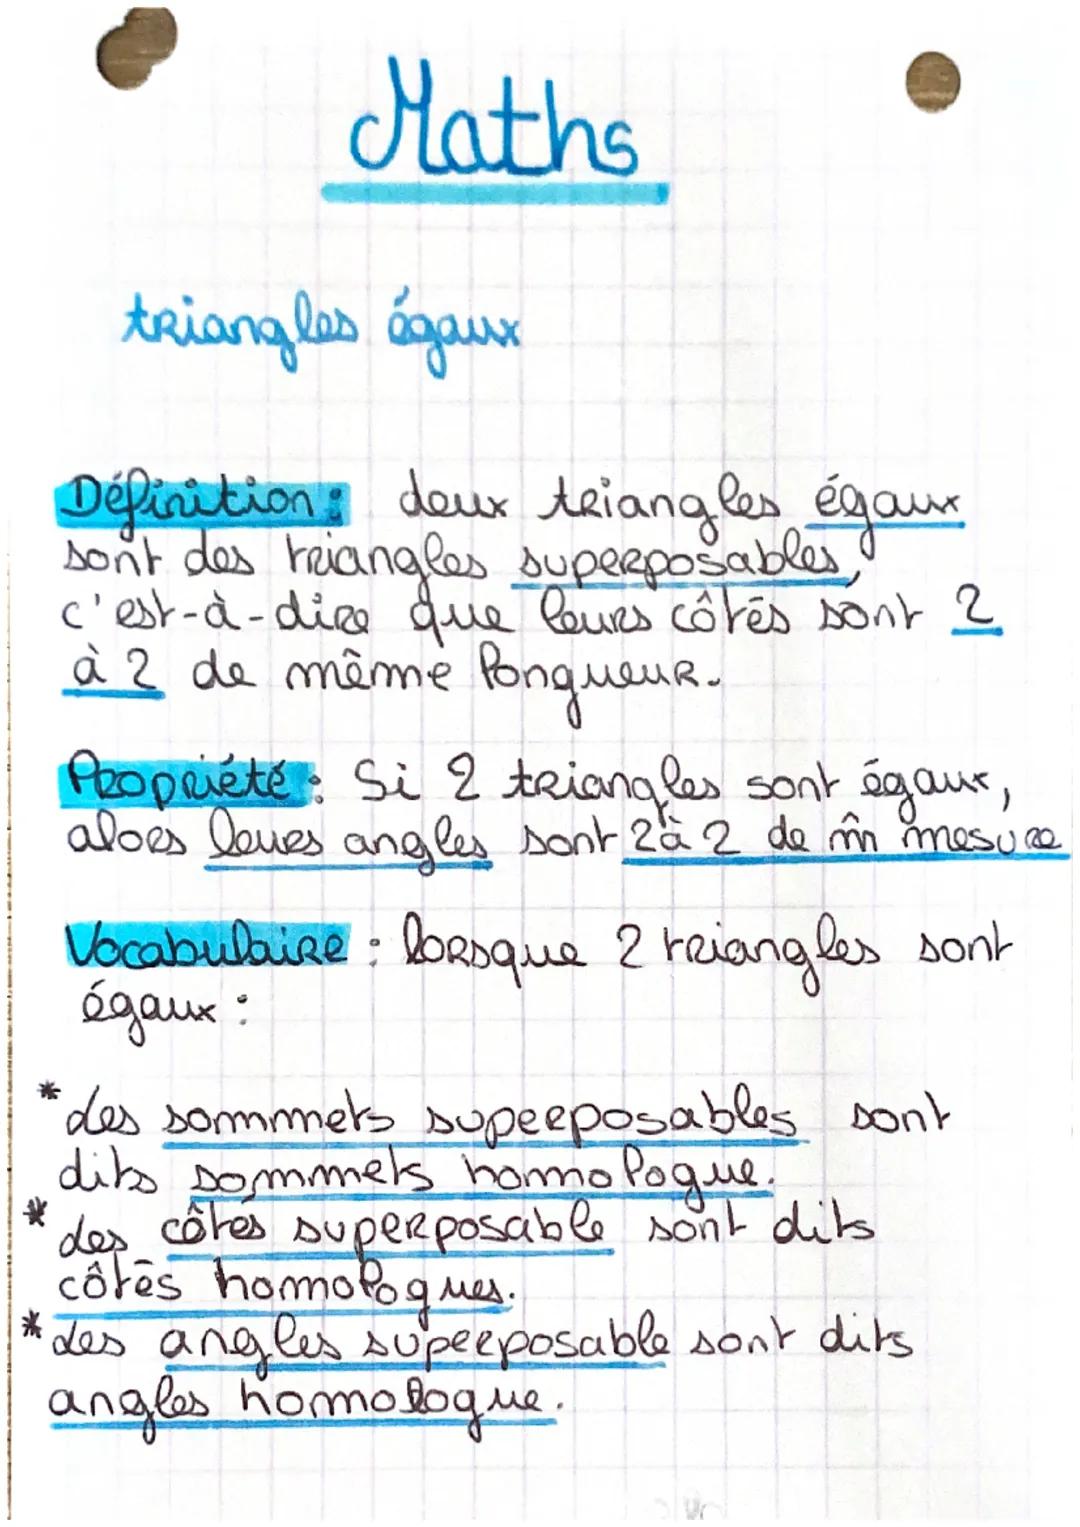 Maths
triangles égaux
Définition : deux triangles égaux
sont des triangles superposables,
c'est-à-dire que leurs côtés sont 2
à 2 de même longueur.
Propriété : Si 2 triangles sont égaux,
alors leurs angles sont 2 à 2 de m̂ mesure
Vocabulaire : lorsque 2 triangles sont
égaux :
* des sommets superposables sont
dits sommets homologue.
* des côtés superposable sont dits
côtés homologues.
* des angles superposable sont dits
angles homologue.